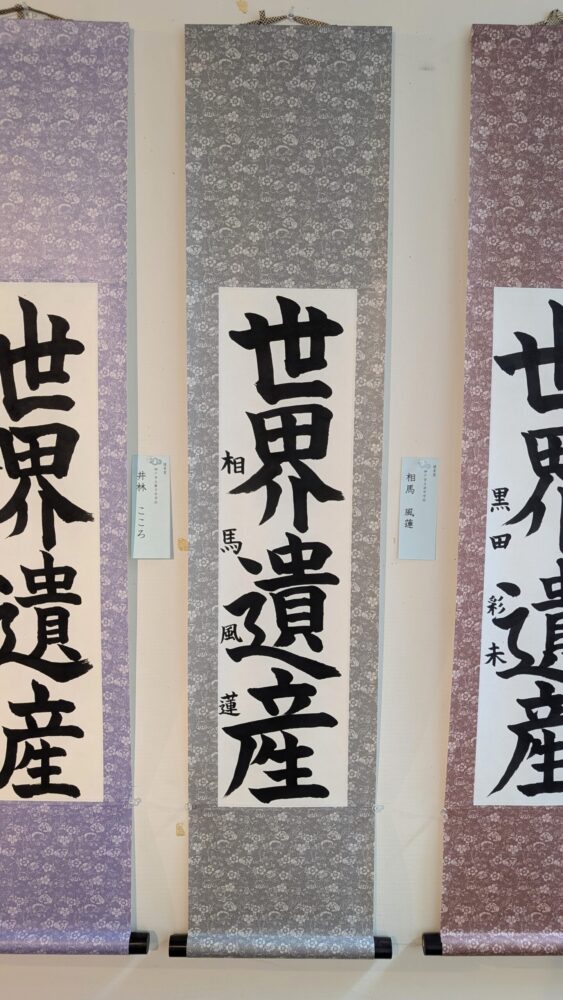 世界遺産
黒田彩未
相馬 風蓮
世界遺産
相馬風蓮
井林 こころ
世界遺産